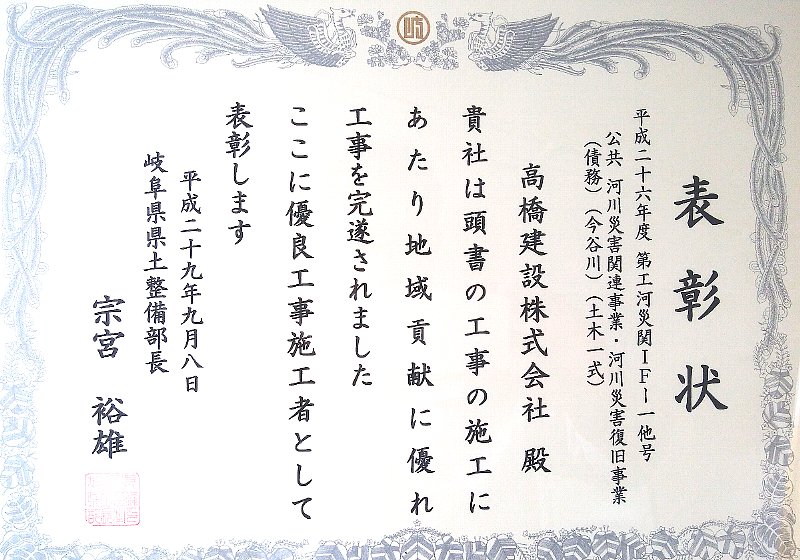 表彰状
平成二十六年度 第工河災関IF-一他号
公共 河川災害関連事業・河川災害復旧事業
(債務)(今谷川)(土木一式)
高橋建設株式会社 殿
貴社は頭書の工事の施工に
あたり地域貢献に優れ
工事を完遂されました
ここに優良工事施工者として
表彰します
平成二十九年九月八日
岐阜県県土整備部長
宗宮 裕雄